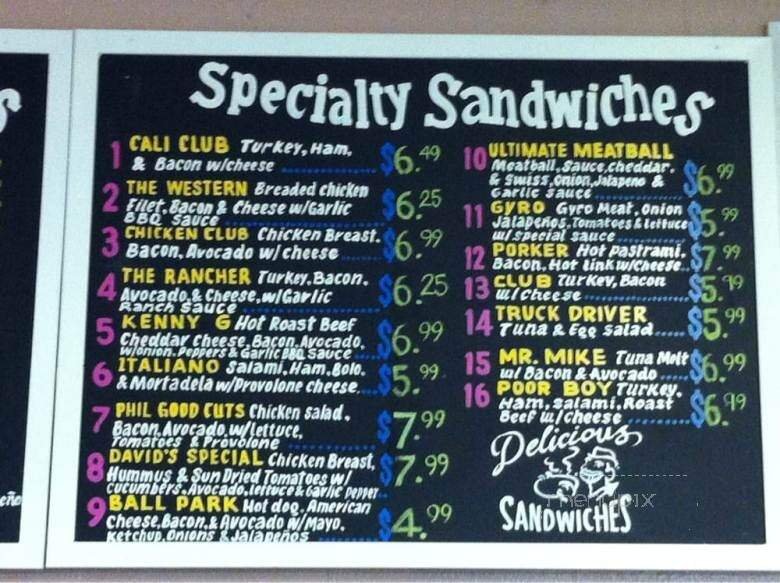 Specialty Sandwiches
1 CALI CLUB Turkey, Ham,
& Bacon w/cheese $6.49
2 THE WESTERN Breaded chicken
Filet, Bacon & Cheese w/Garlic
BBQ Sauce $6.25
3 CHICKEN CLUB Chicken Breast,
Bacon, Avocado w/cheese $6.99
4 THE RANCHER Turkey, Bacon,
Avocado, & Cheese, w/Garlic
Ranch Sauce $6.25
5 KENNY G Hot Roast Beef
Cheddar Cheese, Bacon, Avocado,
w/onion, Peppers & Garlic BBQ Sauce $6.99
6 ITALIANO Salami, Ham, Bolo,
& Mortadela w/Provolone cheese $5.99
7 PHIL GOOD CUTS Chicken salad,
Bacon, Avocado, w/lettuce,
Tomatoes & Provolone $7.99
8 DAVID'S SPECIAL Chicken Breast,
Hummus & Sun Dried Tomatoes w/
cucumbers, Avocado, lettuce & Garlic Pepper $7.99
9 BALL PARK Hot dog, American
Cheese, Bacon, & Avocado w/Mayo,
Ketchup, Onions & Jalapeños $4.99
10 ULTIMATE MEATBALL
Meatball, Sauce, cheddar,
& Swiss, Onion, Jalapeno &
Garlic Sauce $6.99
11 GYRO Gyro Meat, Onion
Jalapeños, Tomatoes & lettuce
w/special sauce $5.99
12 PORKER Hot Pastrami,
Bacon, Hot link w/Cheese $7.99
13 CLUB Turkey, Bacon
w/Cheese $5.99
14 TRUCK DRIVER
Tuna & Egg salad $5.99
15 MR. MIKE Tuna Melt
w/ Bacon & Avocado $6.99
16 POOR BOY Turkey,
Ham, Salami, Roast
Beef w/Cheese $6.99
Delicious
SANDWICHES
menupix